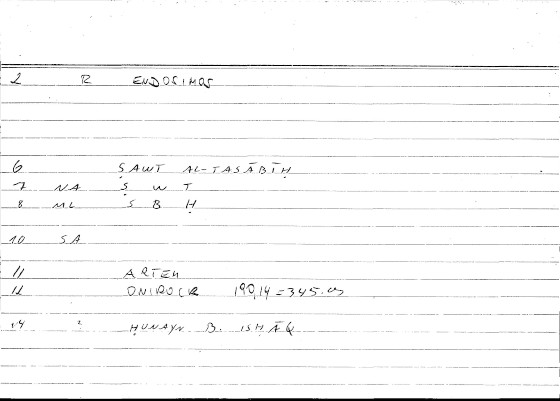 2 R ENDOSIMOS
6 ṢAWT AL-TASĀBĪḤ
7 NA Ṣ W T
8 ML S B Ḥ
10 SA
11 ARTEM
12 ONIROCR 190,14 = 345.
14 ḤUNAYN B. ISḤĀQ